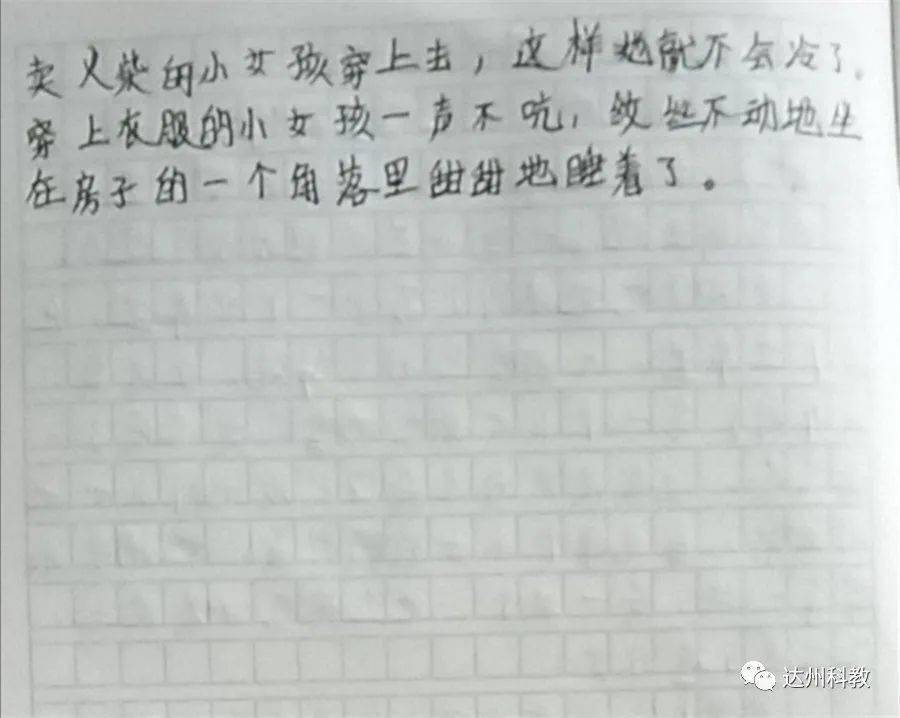 卖火柴的小女孩穿上去，这样她就不会冷了。
穿上衣服的小女孩一声不吭，纹丝不动地坐
在房子的一个角落里甜甜地睡着了。
达州科教